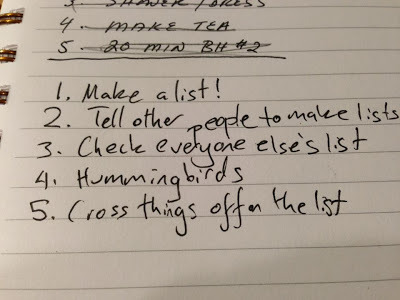 3. SHOWER / DRESS
4. MAKE TEA
5. 20 MIN BH #2
1. Make a list!
2. Tell other people to make lists
3. Check everyone else's list
4. Hummingbirds
5. Cross things off on the list